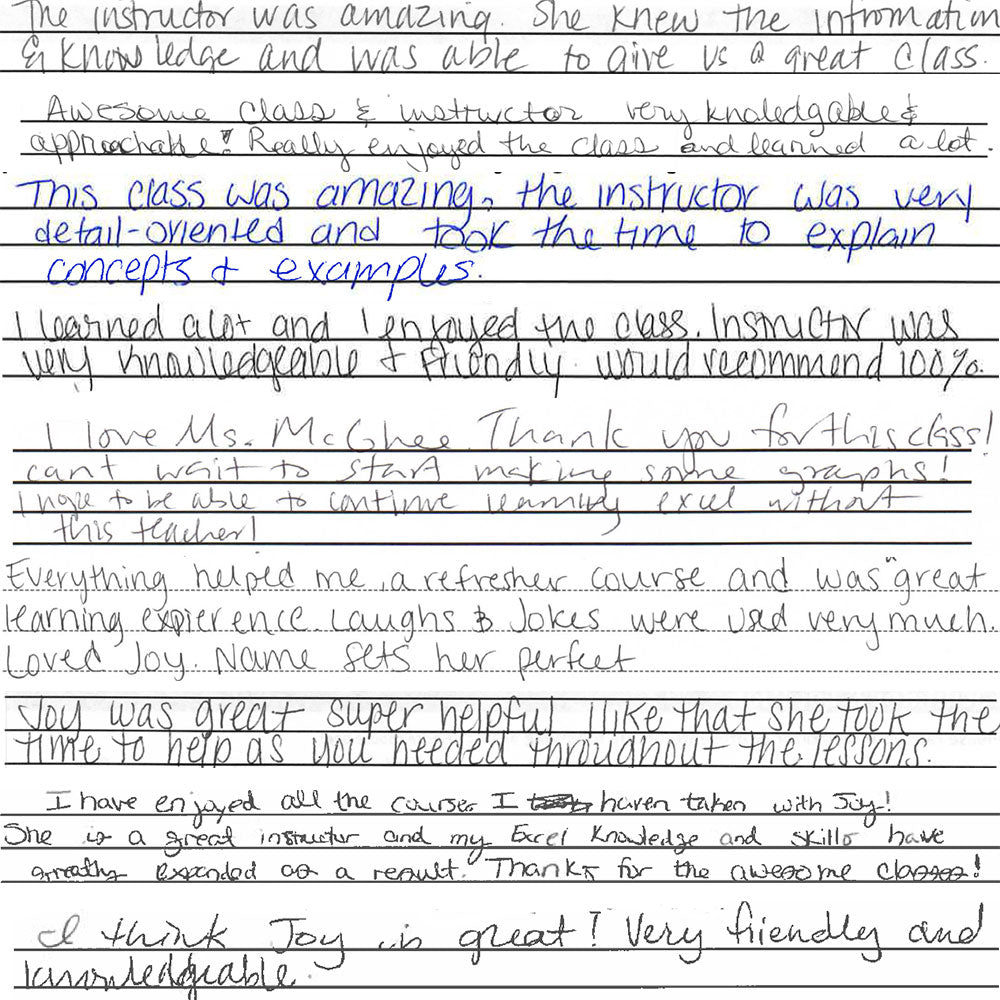 The instructor was amazing. She knew the infromation
& knowledge and was able to give us a great class.
Awesome class & instructor very knoledgable &
approachable! Really enjoyed the class and learned a lot.
This class was amazing, the instructor was very
detail-oriented and took the time to explain
concepts & examples.
I learned alot and I enjoyed the class. Instructor was
very knowledgeable & friendly. Would recommend 100%.
I love Ms. McGhee. Thank you for this class!
can't wait to start making some graphs!
I hope to be able to continue learning excel without
this teacher!
Everything helped me, a refresher course and was "great
learning expierence. Laughs & Jokes were used very much.
Loved Joy. Name sets her perfect
Joy was great super helpful I like that she took the
time to help as you needed throughout the lessons.
I have enjoyed all the courses I haven taken with Joy!
She is a great instructor and my Excel Knowledge and skills have
greatly expanded as a result. Thanks for the awesome classes!
I think Joy is great! Very friendly and
knowledgeable.